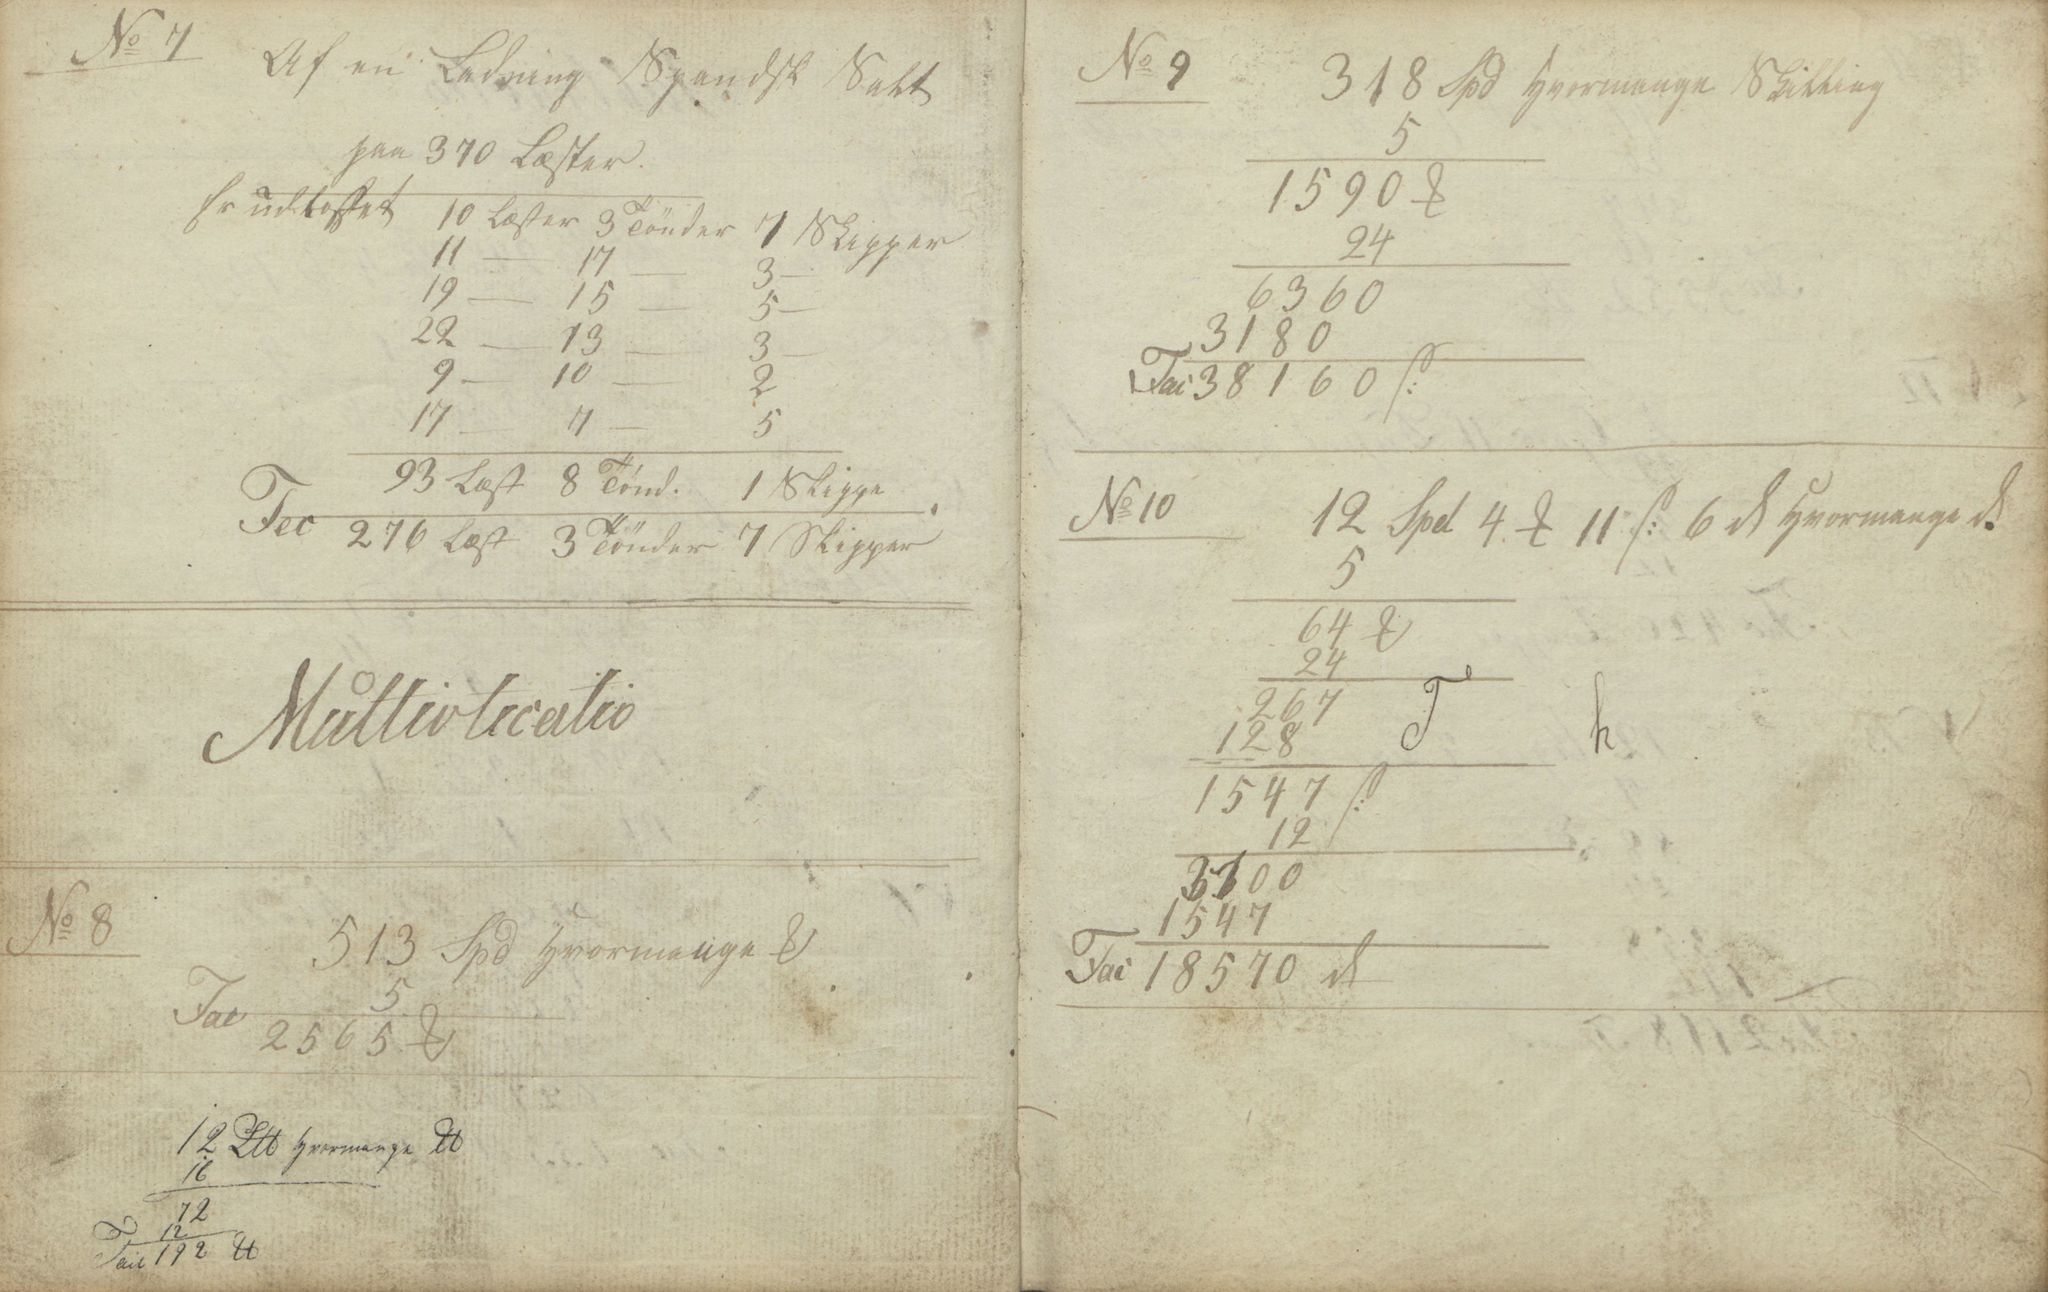 No 7
Af en Ladning Spandsk Salt
paa 370 Læster.
Er udlosset 10 Læster 3 Tönder 7 Skipper
11 — 17 — 3 —
19 — 15 — 5 —
22 — 13 — 3 —
9 — 10 — 2
17 — 7 — 5
93 Læst 8 Tönd. 1 Skippe
Fec 276 Læst 3 Tönder 7 Skipper
Multiplicatio
No 8
513 Spd Hvormange
5
Fac
2565
12 Hvormange
16
72
12
Facit 192
No 9
318 Spd Hvormange Skilling
5
1590
24
6360
3180
Fac 38160 ß:
No 10
12 Spd 4 11 ß: 6 d Hvormange d.
5
64
24
267 T h
128
1547 ß:
12
3100
1547
Fac 18570 d